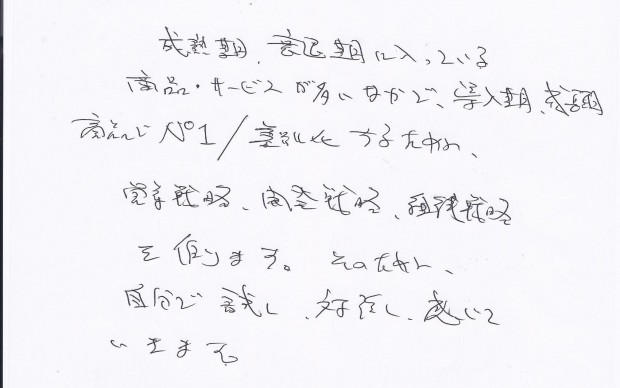 成熟期、衰退期に入っている
商品・サービスが多いなかで、導入期、成長期
商品でNo1/差別化するために、
営業戦略、商全戦略、組織戦略
を作ります。そのために、
自分で試し、対話し、感じて
いきます